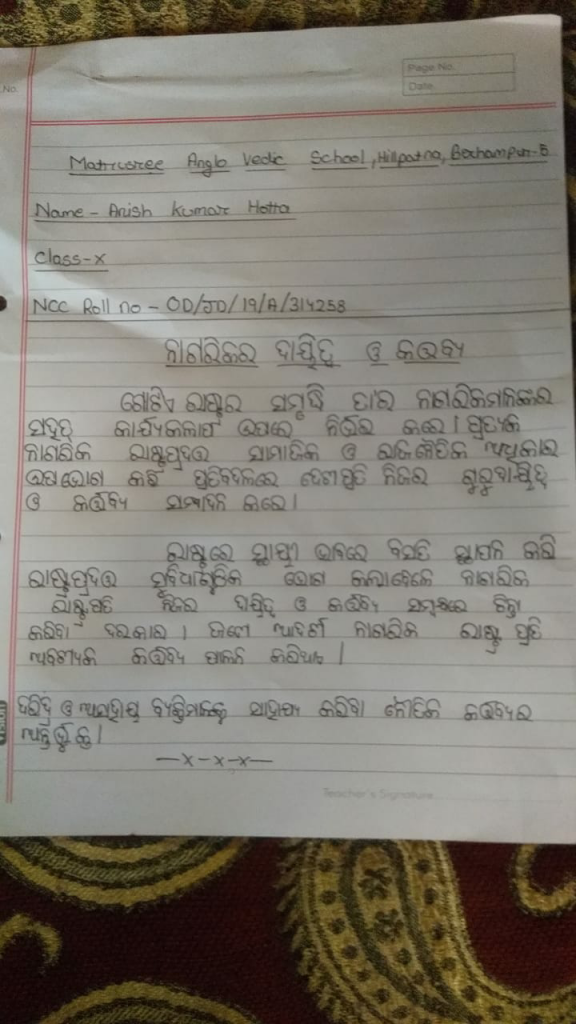 No.
Page No.
Date.
Matrusree Anglo Vedic School, Hillpatna, Berhampur-5
Name - Anish Kumar Hotta
Class-X
NCC Roll no - OD/JD/19/A/314258
ନାଗରିକର ଦାୟିତ୍ୱ ଓ କର୍ତ୍ତବ୍ୟ
ଗୋଟିଏ ରାଷ୍ଟ୍ରର ସମୃଦ୍ଧି ତା'ର ନାଗରିକମାନଙ୍କର
କାର୍ଯ୍ୟକଳାପ ଉପରେ ନିର୍ଭର କରେ । ପ୍ରତ୍ୟେକ
ନାଗରିକ ରାଷ୍ଟ୍ରପ୍ରଦତ୍ତ ସାମାଜିକ ଓ ରାଜନୈତିକ ଅଧିକାର
ଉପଭୋଗ କରି ପ୍ରତିବଦଳରେ ଦେଶପ୍ରତି ନିଜର ଗୁରୁଦାୟିତ୍ୱ
ଓ କର୍ତ୍ତବ୍ୟ ସମ୍ପାଦନ କରେ ।
ରାଷ୍ଟ୍ରରେ ସ୍ଥାୟୀ ଭାବରେ ବସତି ସ୍ଥାପନ କରି
ରାଷ୍ଟ୍ରପ୍ରଦତ୍ତ ସୁବିଧାଗୁଡ଼ିକ ଭୋଗ କଲାବେଳେ ନାଗରିକ
ରାଷ୍ଟ୍ରପ୍ରତି ନିଜର ଦାୟିତ୍ୱ ଓ କର୍ତ୍ତବ୍ୟ ସମ୍ବନ୍ଧରେ ଚିନ୍ତା
କରିବା ଦରକାର । ଜଣେ ଆଦର୍ଶ ନାଗରିକ ରାଷ୍ଟ୍ର ପ୍ରତି
ଆବଶ୍ୟକ କର୍ତ୍ତବ୍ୟ ପାଳନ କରିଥାଏ ।
ଦରିଦ୍ର ଓ ଅସହାୟ ବ୍ୟକ୍ତିମାନଙ୍କୁ ସାହାଯ୍ୟ କରିବା ନୈତିକ କର୍ତ୍ତବ୍ୟର
ଅନ୍ତର୍ଭୁକ୍ତ ।
—x-x-x—
Teacher's Signature